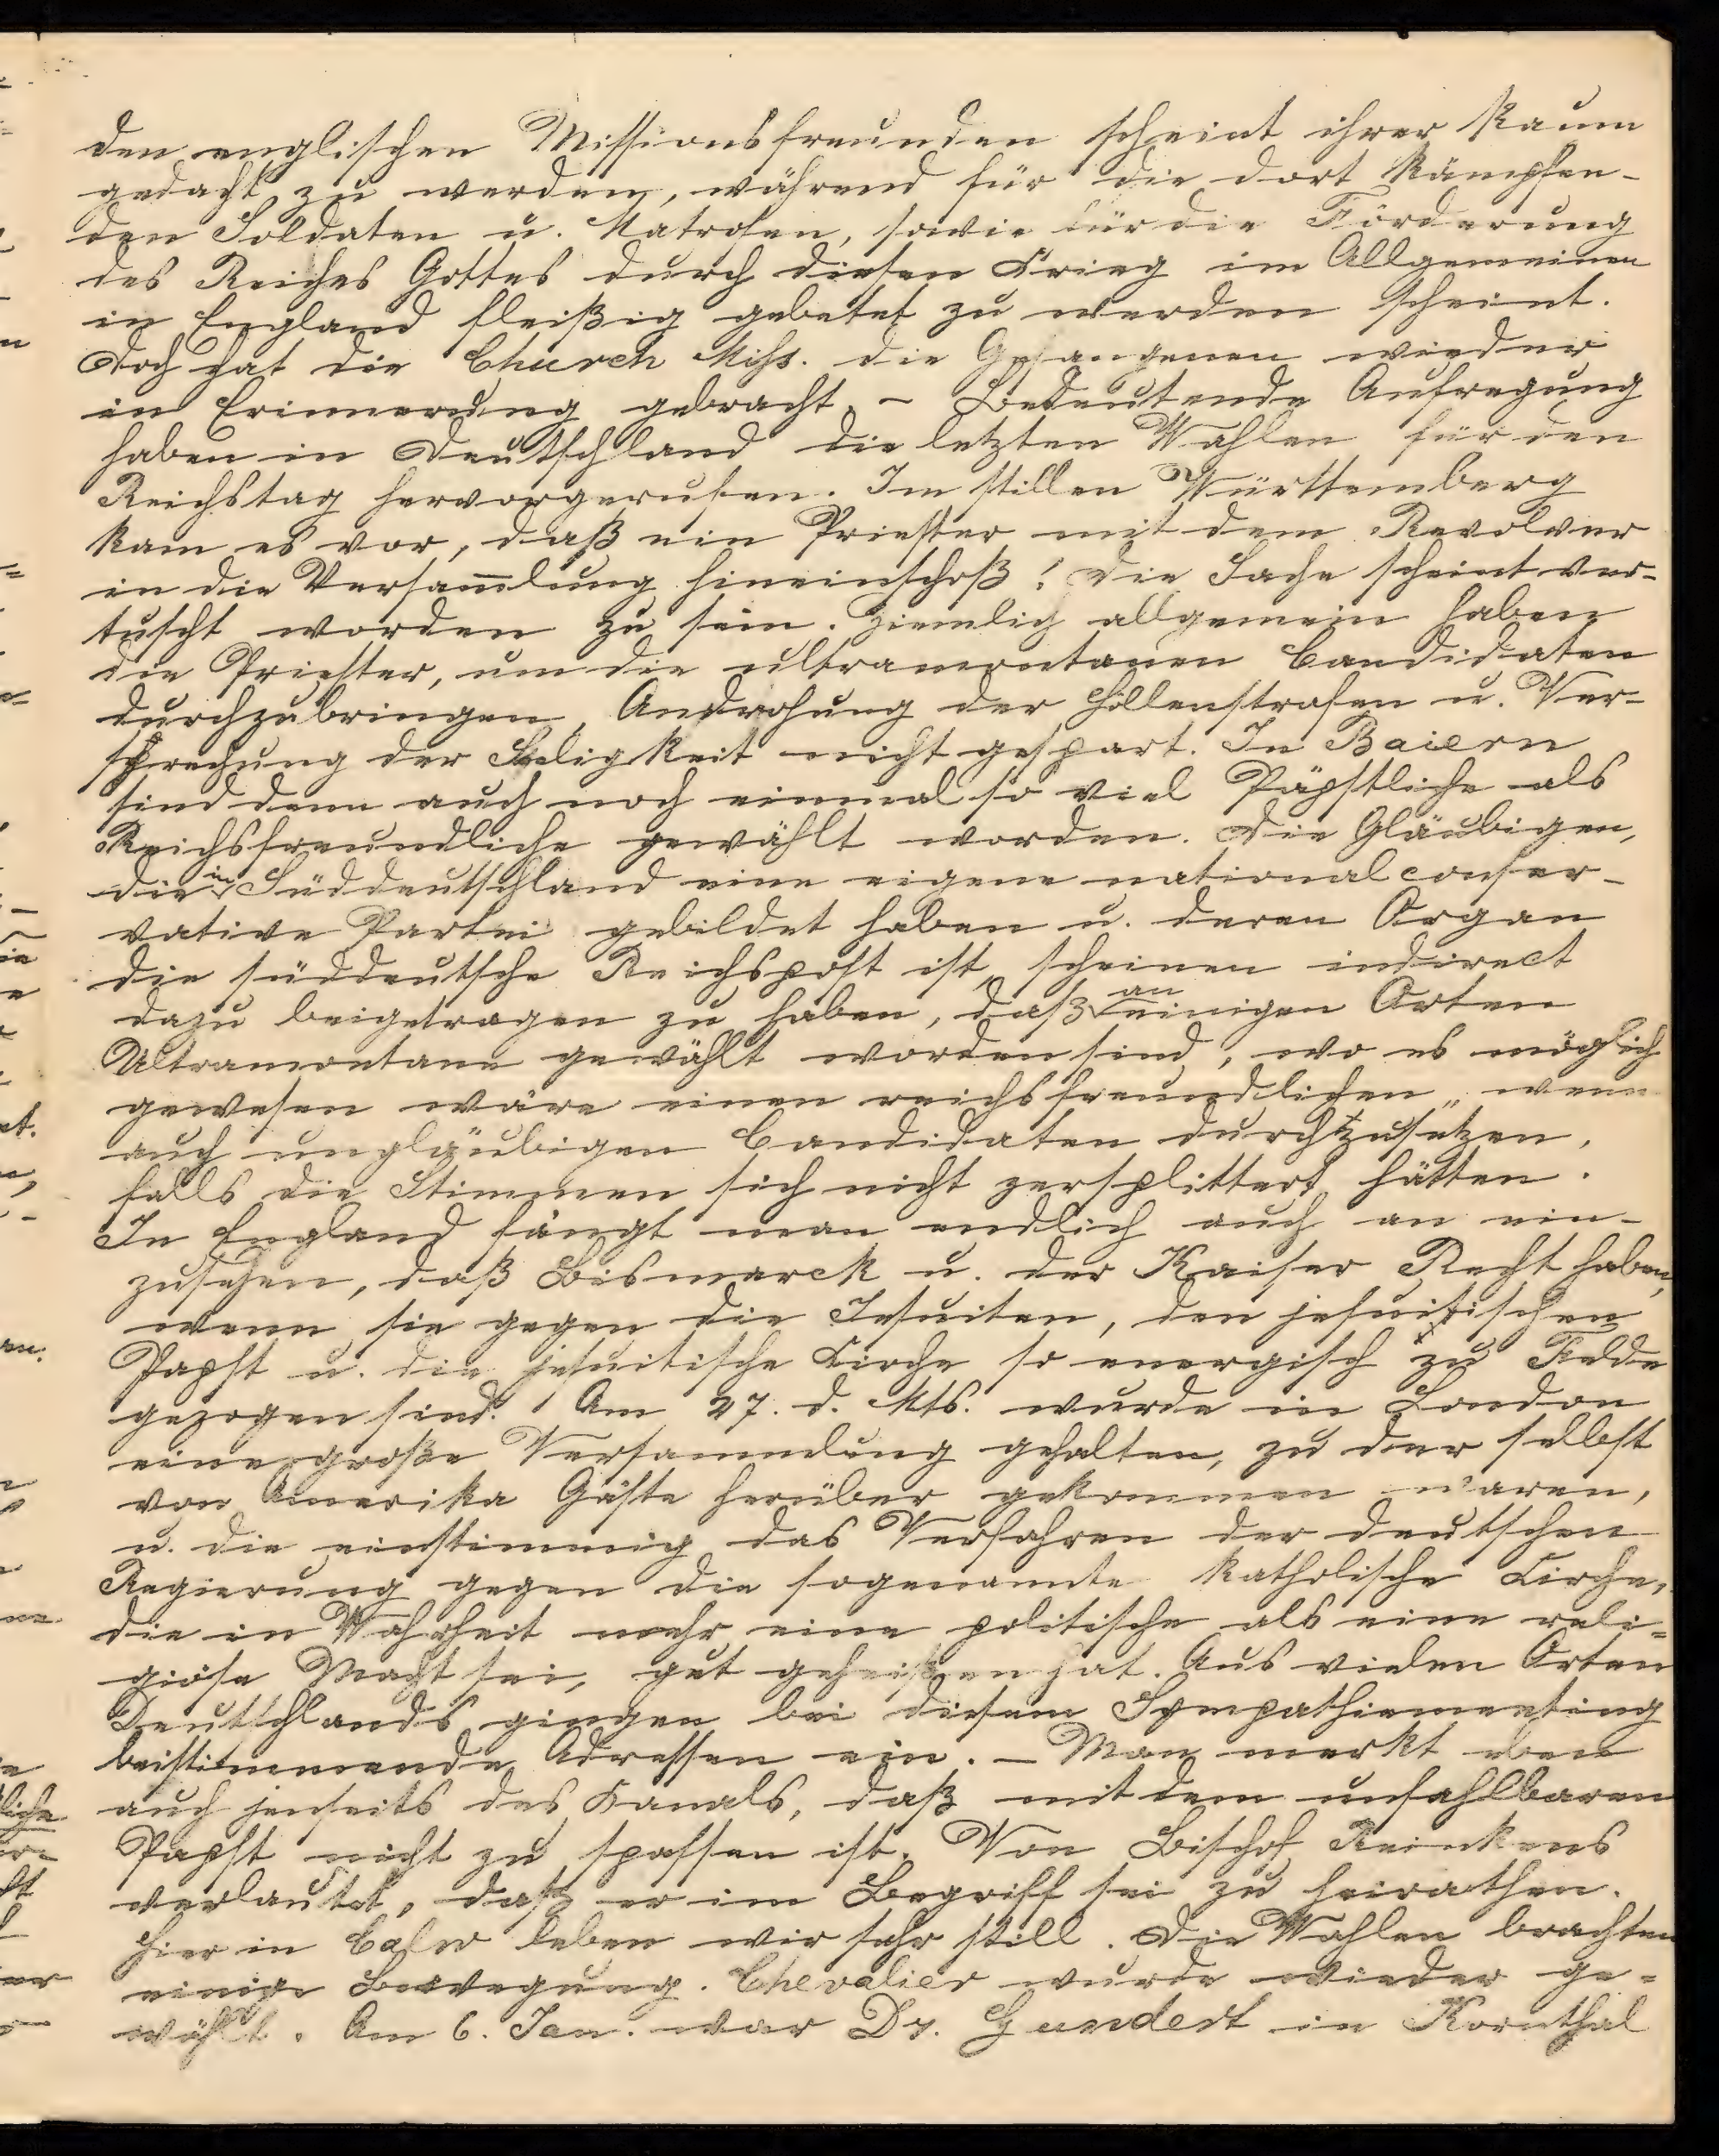 den englischen Missionsfreunden scheint ihrer kaum
gedacht zu werden, während für die dort kämpfen-
den Soldaten u. Matrosen, sowie für die Förderung
des Reiches Gottes durch diesen Krieg im Allgemeinen
in England fleißig gebetet zu werden scheint.
Doch hat die Church Miss. die Gefangenen wieder
in Erinnerung gebracht. - Bedeutende Aufregung
haben in Deutschland die letzten Wahlen für den
Reichstag hervorgerufen. Im stillen Württemberg
kam es vor, daß ein Priester mit dem Revolver
in die Versam̄lung hineinschoß! Die Sache scheint ver-
tuscht worden zu sein. Ziemlich allgemein haben
die Priester, um die ultramontanen Candidaten
durchzubringen, Androhung der Höllenstrafen u. Ver-
sprechung der Seligkeit nicht gespart. In Baiern
sind denn auch noch einmal so viel Päpstliche als
Reichsfreundliche gewählt worden. Die Gläubigen,
die in Süddeutschland eine eigene national conser-
vative Partei gebildet haben u. deren Organ
die süddeutsche Reichspost ist, scheinen indirect
dazu beigetragen zu haben, daß an einigen Orten
Ultramontane gewählt worden sind, wo es möglich
gewesen wäre einen reichsfreundlichen, wenn
auch ungläubigen Candidaten durchzusetzen,
falls die Stimmen sich nicht zersplittert hätten.
In England fängt man endlich auch an ein-
zusehen, daß Bismarck u. der Kaiser Recht haben,
wenn sie gegen die Jesuiten, den jesuitischen
Papst u. die jesuitische Kirche so energisch zu Felde
gezogen sind. Am 27. d. Mts. wurde in London
eine große Versammlung gehalten, zu der selbst
von Amerika Gäste herüber gekommen waren,
u. die einstimmig das Verfahren der deutschen
Regierung gegen die sogenannte katholische Kirche,
die in Wahrheit mehr eine politische als eine reli=
giöse Macht sei, gut geheißen hat. Aus vielen Orten
Deutschlands gingen bei diesem Sympathiemeeting
beistimmende Adressen ein. - Man merkt eben
auch jenseits des Kanals, daß mit dem unfahlbaren
Papst nicht zu spassen ist. Von Bischof Reinkens
verlautet, daß er im Begriff sei zu heirathen.
Hier in Calw leben wir sehr still. Die Wahlen brachten
einige Bewegung. Chevalier wurde wieder ge=
wählt. Am 6. Jan. war Dr. Gundert in Kornthal